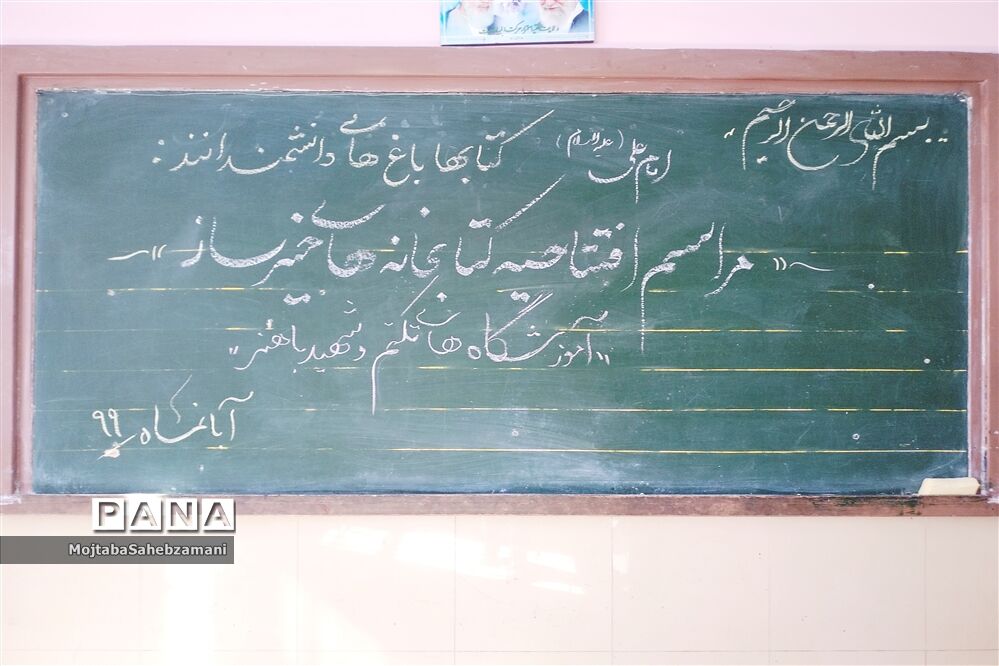 بسم الله الرحمن الرحیم
امام علی (علیه السلام) کتابها باغ های دانشمندانند:
« مراسم افتتاحیه کتابخانه های خیرساز »
«آموزشگاه های تکتم و شهید باهنر»
آبانماه ۹۹
PANA
MojtabaSahebzamani